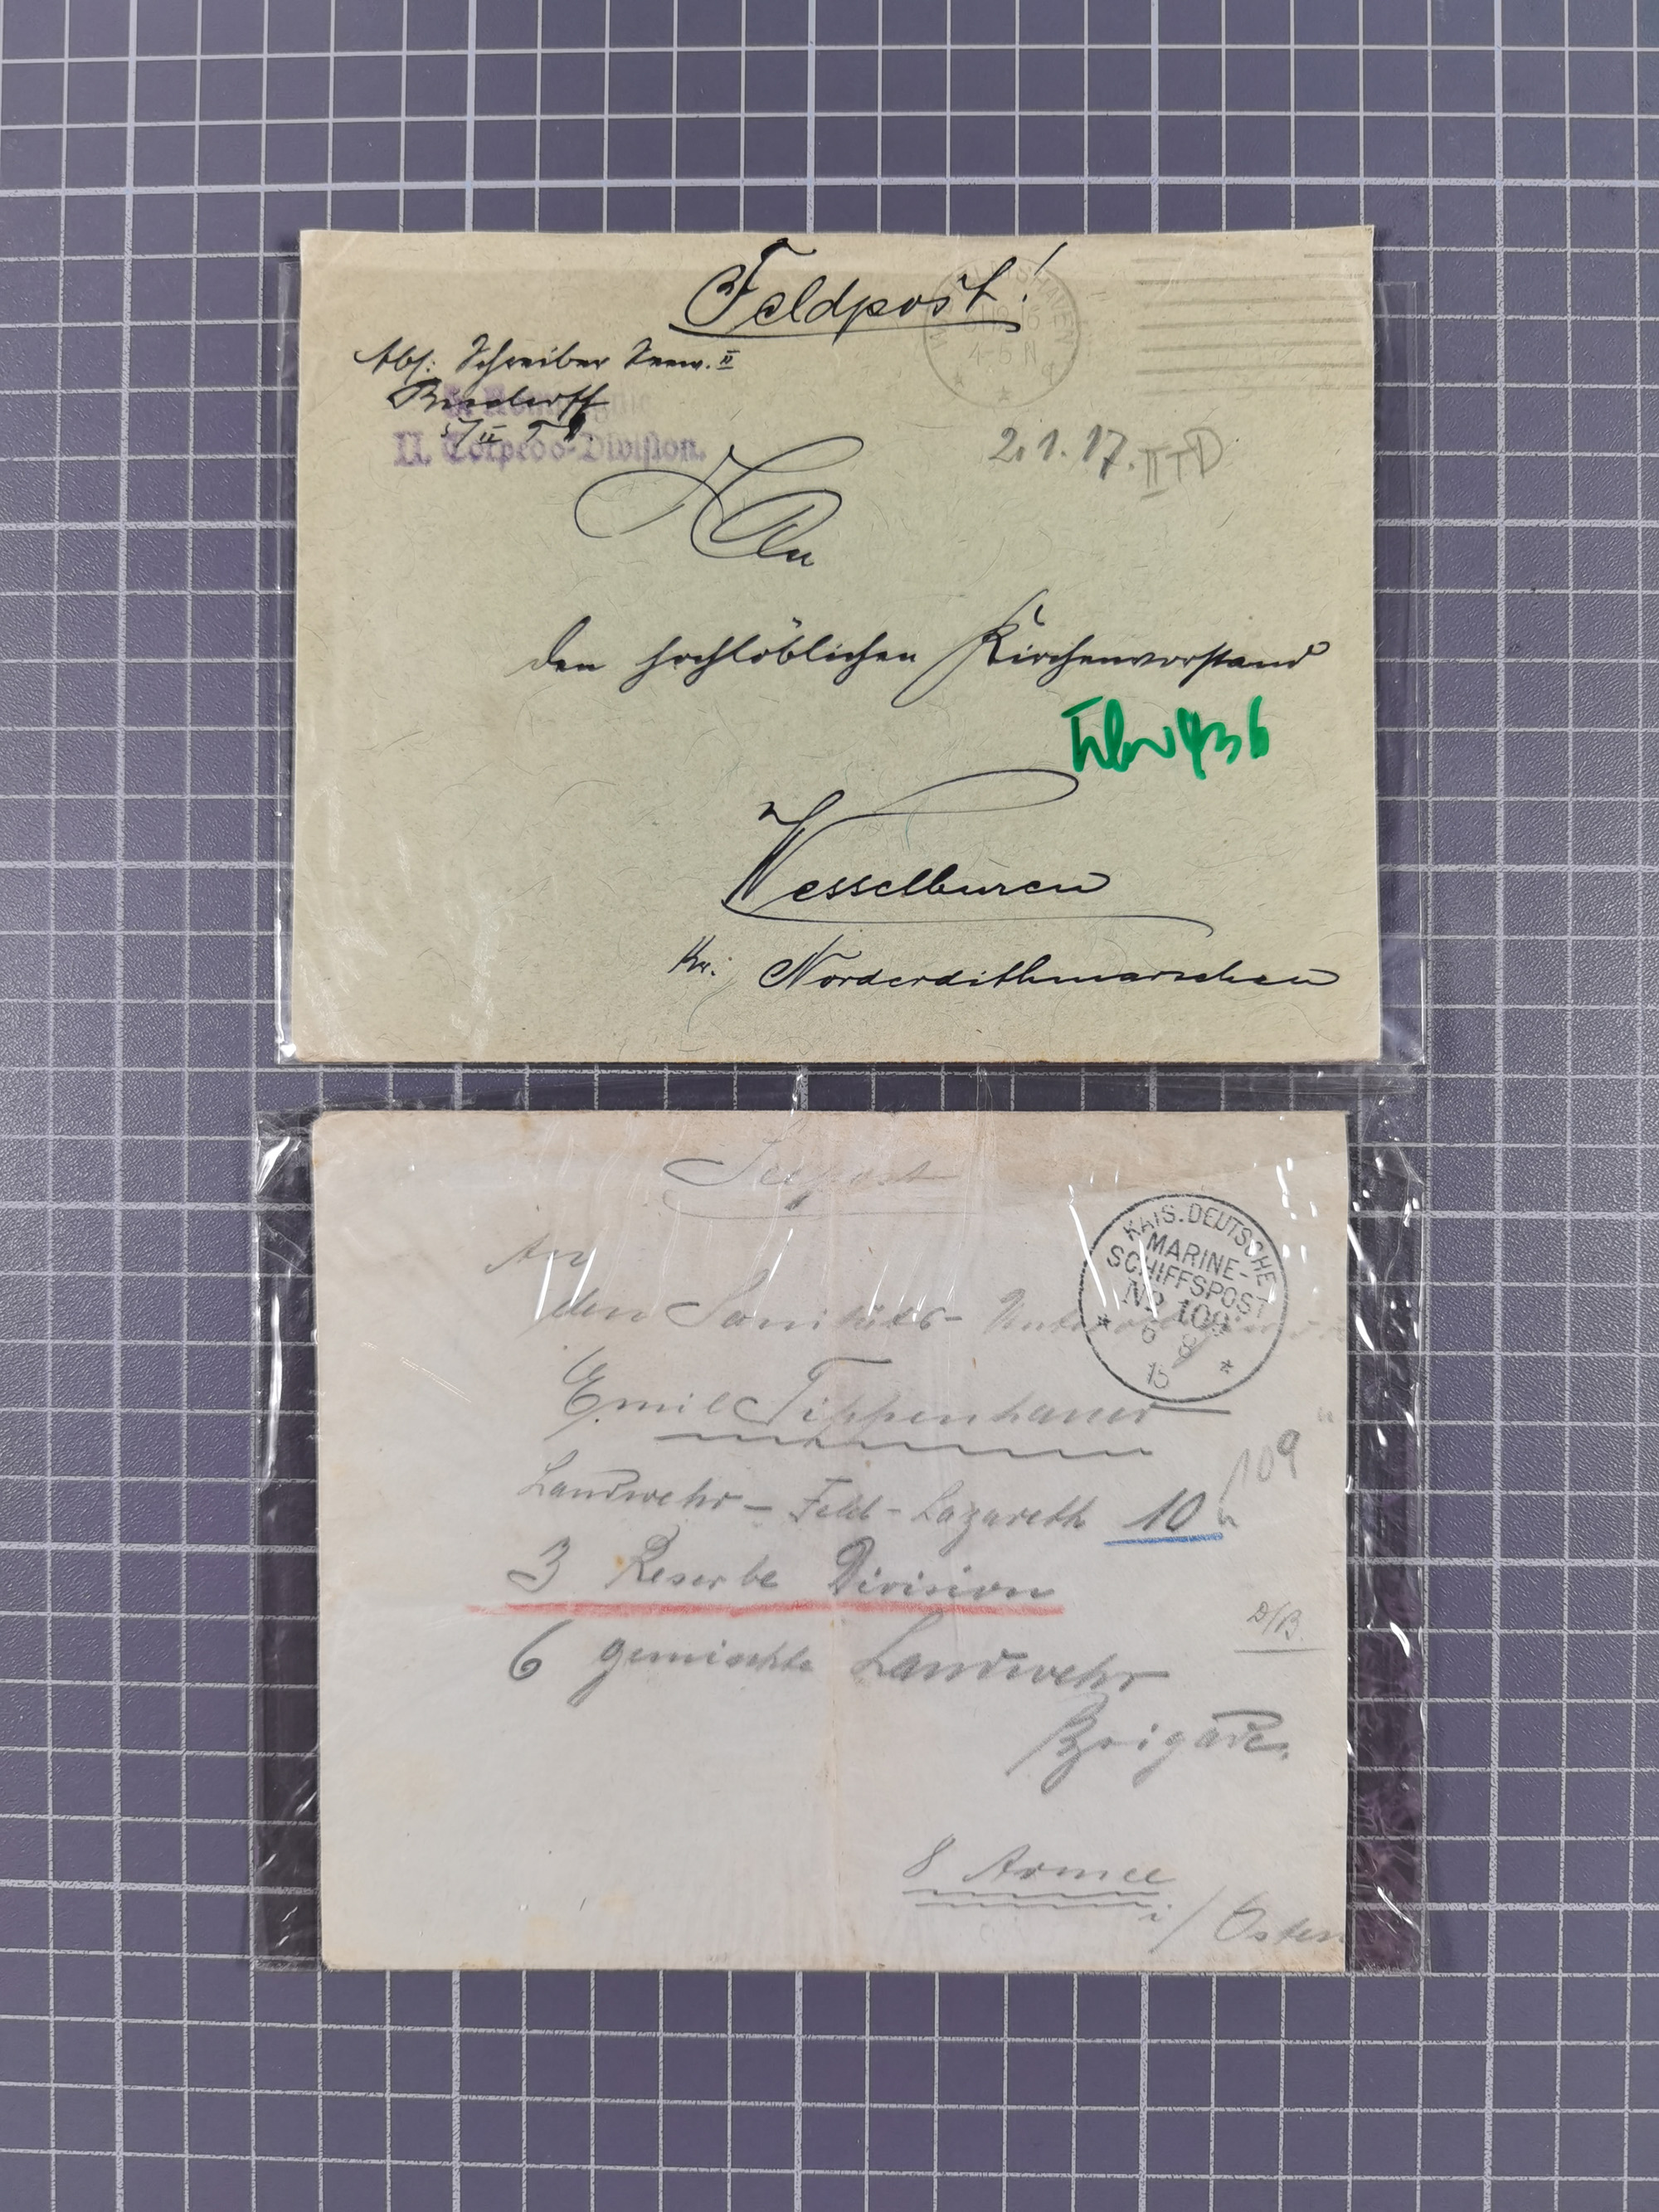 Feldpost!
Abs: Schreiber Seew. II
5/II T.D.
II. Torpedo-Division.
4-5 N
2.1.17. II TD
An
den hochlöblichen Kirchenvorstand
Wesselburen
Kr. Norderdithmarschen
KAIS. DEUTSCHE
MARINE-
SCHIFFSPOST
No 109
6 8
15
An
den Sanitäts-
Emil Tippenhauer
109
Landwehr - Feld - Lazareth 10
3 Reserve Division
D/B.
6 gemischte Landwehr
Brigade.
8 Armee
i/ Osten